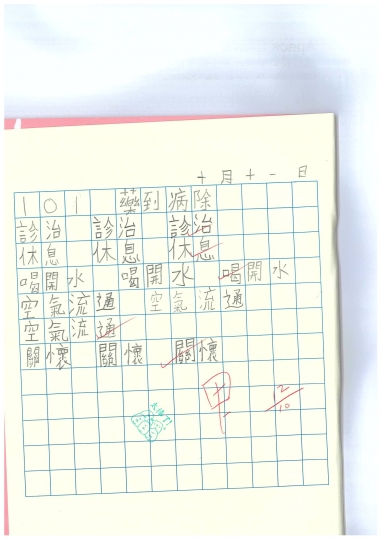 十月十一日
101 藥到病除
診治 診治 診治
休息 休息 休息
喝開水 喝開水 喝開水
空氣流通 空氣流通
空氣流通
關懷 關懷 關懷
甲 12/10